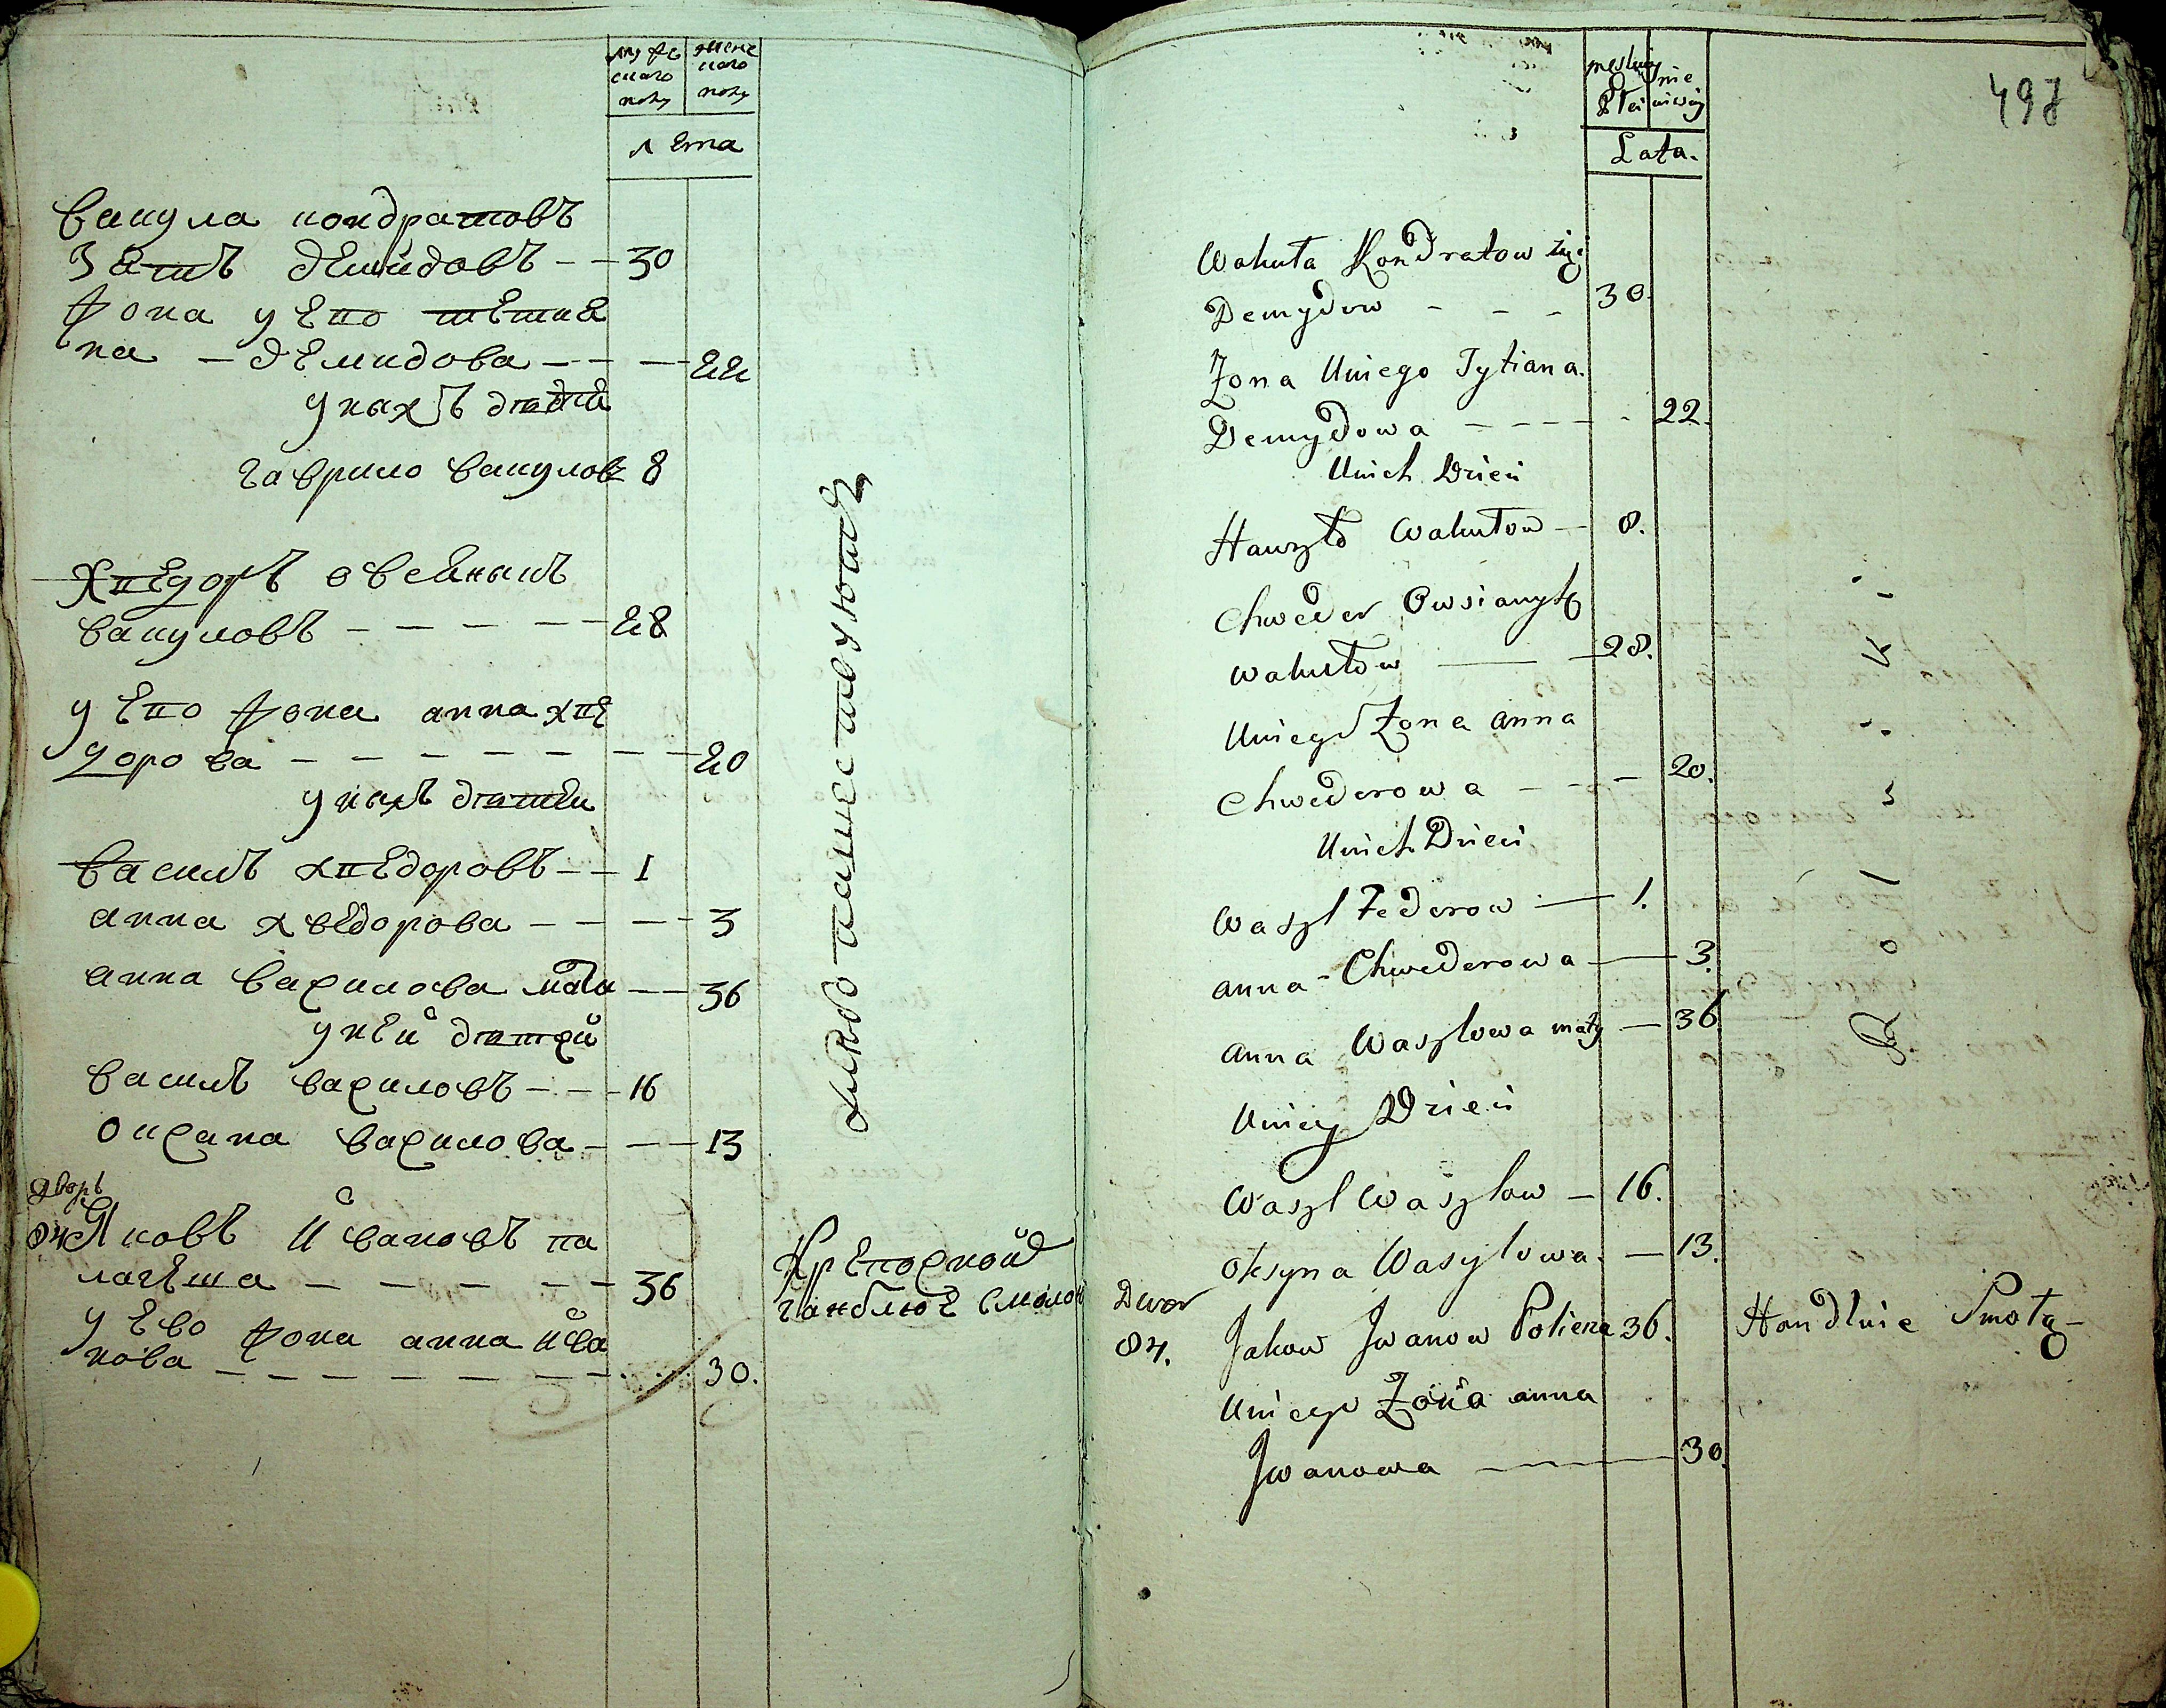 мужс женс
скаго каго
полу полу
лета
Вакула кондратовъ
Зять демидовъ 30
жона у Его тетиа
на демидова 22
у ныхъ дитей
гаврило вакуловъ 8
Хведоръ овсяныкъ
вакуловъ 28
у Его жона анна хве
дорова 20
у ныхъ дитей
василь хведоровъ 1
анна хведорова 3
анна василова мати 36
у ней дитей
василь василовъ 16
оксана василова 13
дворъ
84 Яковъ Ивановъ па
лагеша 36
у Ево жона анна ива
нова 30.
хлебопашествуютъ
Крепосной
ганблюе смолою
497
męskiey nie
Płci wiej
Lata.
Wakuła Kondratow zięć
Demydow 30.
Żona Uniego Tytiana.
Demydowa 22.
Unich Dzieci
Hawryło Wakułow 8.
Chweder Owsianyk
Wakułow 28.
Uniego Żona anna
Chwederowa 20.
Unich Dzieci
Wasyl Federow 1.
anna Chwederowa 3.
anna Wasylowa maty 36
Uniey Dzieci
Wasyl Wasylow 16.
Oksyna Wasylowa. 13.
Dwor
84. Jakow Iwanow Poliena 36. Handluie Smołą
Uniego Żona anna
Iwanowa 30.
Rolski